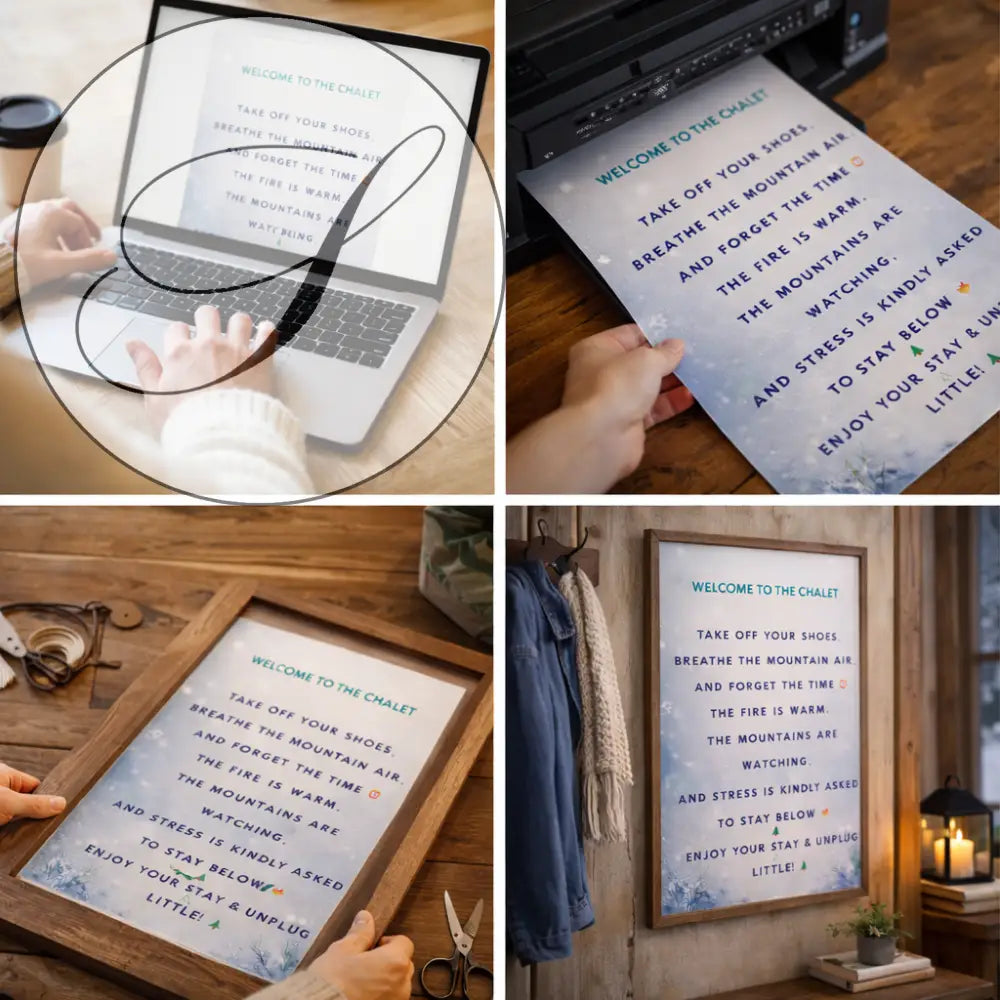 WELCOME TO THE CHALET
TAKE OFF YOUR SHOES,
BREATHE THE MOUNTAIN AIR
AND FORGET THE TIME
THE FIRE IS WARM
THE MOUNTAINS ARE
WELCOME TO THE CHALET
TAKE OFF YOUR SHOES,
BREATHE THE MOUNTAIN AIR
AND FORGET THE TIME
THE FIRE IS WARM.
THE MOUNTAINS ARE
WATCHING.
AND STRESS IS KINDLY ASKED
TO STAY BELOW
ENJOY YOUR STAY & UN
LITTLE!
WELCOME TO THE CHALET
TAKE OFF YOUR SHOES,
BREATHE THE MOUNTAIN AIR,
AND FORGET THE TIME
THE FIRE IS WARM.
THE MOUNTAINS ARE
WATCHING,
AND STRESS IS KINDLY ASKED
TO STAY BELOW
ENJOY YOUR STAY & UNPLUG
LITTLE!
WELCOME TO THE CHALET
TAKE OFF YOUR SHOES,
BREATHE THE MOUNTAIN AIR,
AND FORGET THE TIME
THE FIRE IS WARM.
THE MOUNTAINS ARE
WATCHING.
AND STRESS IS KINDLY ASKED
TO STAY BELOW
ENJOY YOUR STAY & UNPLUG
LITTLE!